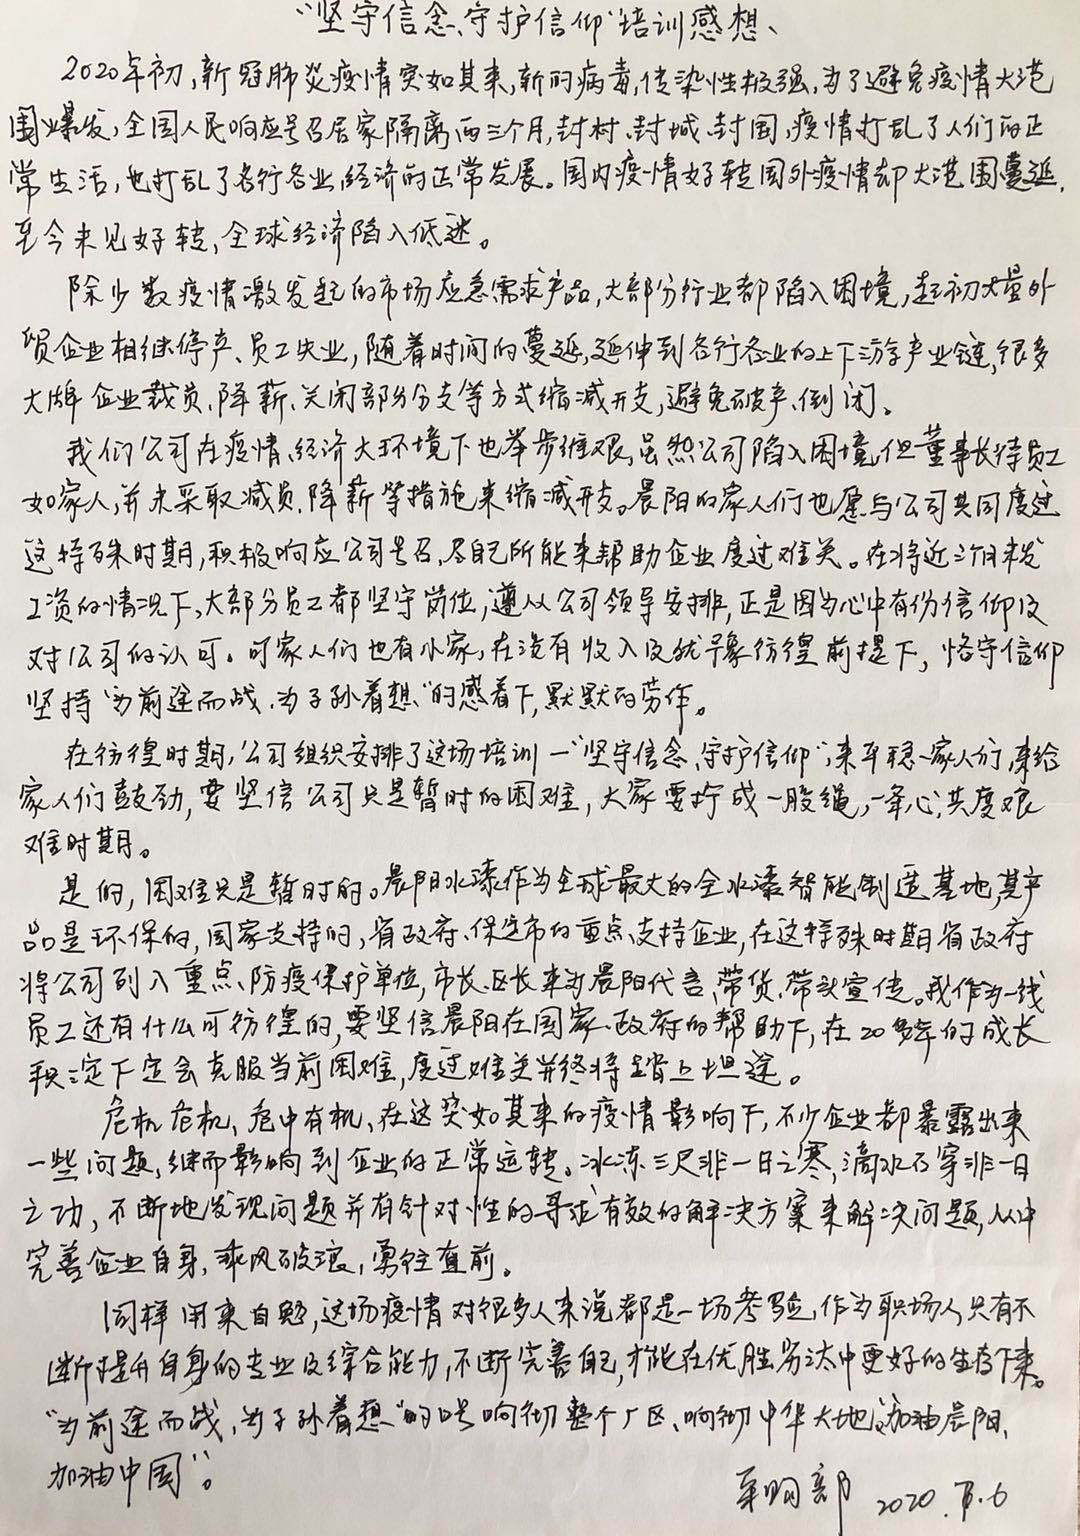 “坚守信念、守护信仰”培训感想、
2020年初,新冠肺炎疫情突如其来,新的病毒,传染性极强,为了避免疫情大范
围爆发,全国人民响应号召居家隔离两三个月,封村、封城、封国,疫情打乱了人们的正
常生活,也打乱了各行各业,经济的正常发展。国内疫情好转国外疫情却大范围蔓延,
至今未见好转,全球经济陷入低迷。
除少数疫情激发起的市场应急需求产品,大部分行业都陷入困境,起初大量外
贸企业相继停产、员工失业,随着时间的蔓延,延伸到各行各业的上下游产业链,很多
大牌企业裁员、降薪、关闭部分分支等方式缩减开支,避免破产、倒闭。
我们公司在疫情、经济大环境下也举步维艰,虽然公司陷入困境,但董事长待员工
如家人,并未采取减员、降薪等措施来缩减开支。晨阳的家人们也愿与公司共同度过
这特殊时期,积极响应公司号召,尽自己所能来帮助企业度过难关。在将近三个月未发
工资的情况下,大部分员工都坚守岗位,遵从公司领导安排,正是因为心中有份信仰及
对公司的认可。可家人们也有小家,在没有收入及犹豫彷徨前提下,恪守信仰
坚持“为前途而战、为子孙着想”的感着下,默默的劳作。
在彷徨时期,公司组织安排了这场培训一“坚守信念、守护信仰”,来平稳家人们,来给
家人们鼓劲,要坚信公司只是暂时的困难,大家要拧成一股绳,一条心,共度艰
难时期。
是的,困难只是暂时的。晨阳水漆作为全球最大的全水漆智能制造基地,其产
品是环保的,国家支持的,省政府、保定市的重点支持企业,在这特殊时期省政府
将公司列入重点、防疫保护单位,市长、区长来为晨阳代言、带货、带头宣传。我作为一线
员工还有什么可彷徨的,要坚信晨阳在国家、政府的帮助下,在20多年的成长
积淀下定会克服当前困难,度过难关并终将踏上坦途。
危机危机、危中有机、在这突如其来的疫情影响下,不少企业都暴露出来
一些问题,继而影响到企业的正常运转。冰冻三尺非一日之寒,滴水石穿非一日
之功,不断地发现问题并有针对性的寻求有效的解决方案来解决问题,从中
完善企业自身,乘风破浪,勇往直前。
同样用来自勉,这场疫情对很多人来说都是一场考验,作为职场人只有不
断提升自身的专业及综合能力,不断完善自己,才能在优胜劣汰中更好的生存下来。
“为前途而战,为子孙着想”的口号响彻整个厂区、响彻中华大地,“加油晨阳、
加油中国”。
采购部 2020.7.6